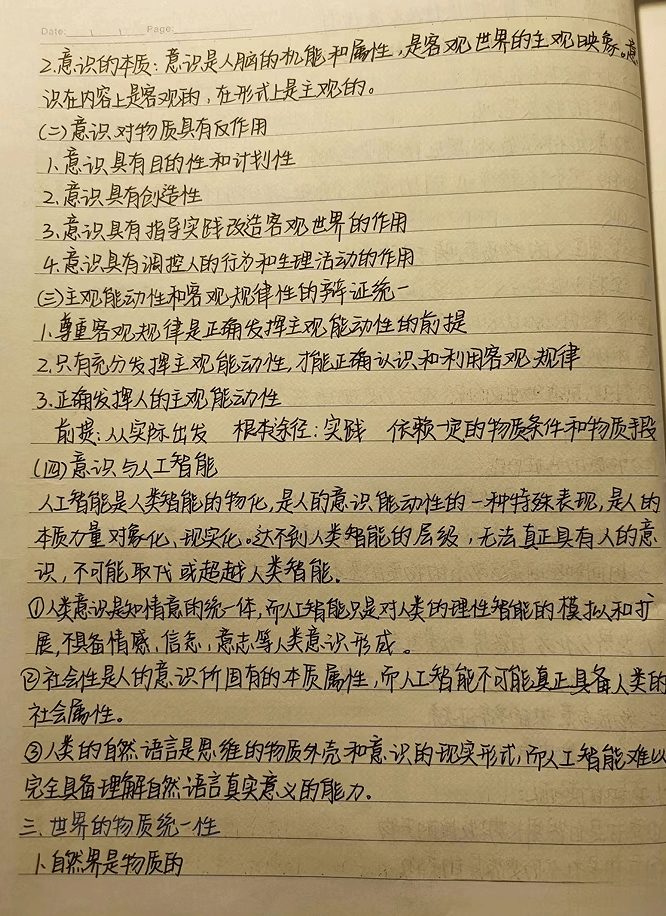 Date: Page:
2.意识的本质：意识是人脑的机能和属性，是客观世界的主观映象。意
识在内容上是客观的，在形式上是主观的。
(二)意识对物质具有反作用
1.意识具有目的性和计划性
2.意识具有创造性
3.意识具有指导实践改造客观世界的作用
4.意识具有调控人的行为和生理活动的作用
(三)主观能动性和客观规律性的辩证统一
1.尊重客观规律是正确发挥主观能动性的前提
2.只有充分发挥主观能动性，才能正确认识和利用客观规律
3.正确发挥人的主观能动性
前提：从实际出发 根本途径：实践 依赖一定的物质条件和物质手段
(四)意识与人工智能
人工智能是人类智能的物化，是人的意识能动性的一种特殊表现，是人的
本质力量对象化、现实化。达不到人类智能的层级，无法真正具有人的意
识，不可能取代或超越人类智能。
①人类意识是知情意的统一体，而人工智能只是对人类的理性智能的模拟和扩
展，不具备情感、信念、意志等人类意识形成。
②社会性是人的意识所固有的本质属性，而人工智能不可能真正具备人类的
社会属性。
③人类的自然语言是思维的物质外壳和意识的现实形式，而人工智能难以
完全具备理解自然语言真实意义的能力。
三.世界的物质统一性
1.自然界是物质的